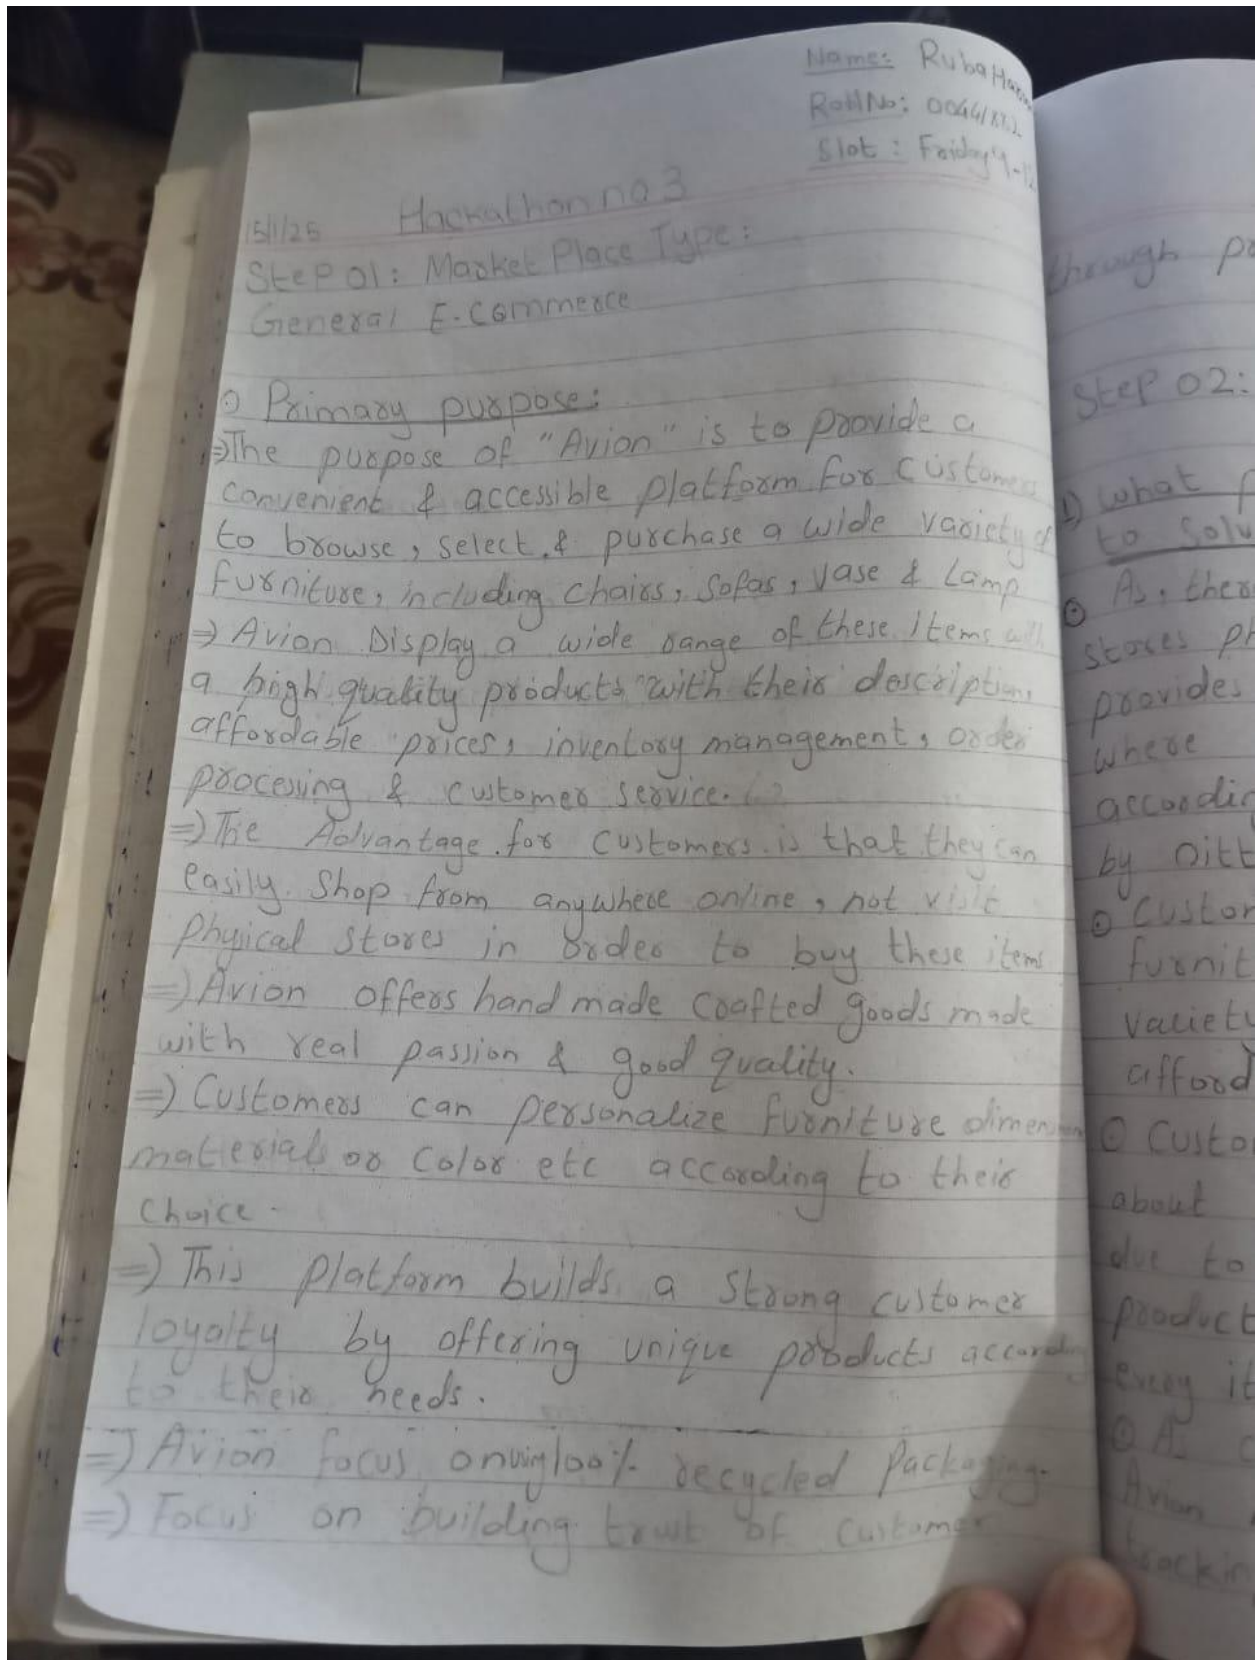 Name: Ruba
Roll No:
Slot : Friday
15/1/25 Hackathon no 3
Step 01: Market Place Type:
General E-Commerce
⊙ Primary purpose:
⇒The purpose of "Avion" is to provide a
convenient & accessible platform for customers
to browse, select & purchase a wide variety of
furniture, including chairs, Sofas, Vase & Lamp
⇒ Avion Display a wide range of these items with
a high quality products with their description,
affordable prices, inventory management, order
processing & customer service.
⇒ The Advantage for customers is that they can
easily shop from anywhere online, not visit
Physical stores in order to buy these items
⇒ Avion offers hand made crafted goods made
with real passion & good quality.
⇒ Customers can personalize furniture dimension
materials or color etc according to their
choice.
⇒ This platform builds a strong customer
loyalty by offering unique products according
to their needs.
⇒ Avion focus on using 100% recycled Packaging.
⇒ Focus on building trust of customer
through
Step 02:
1) what
to
⊙ As, there
stores
provides
where
by
⊙
variety
⊙
about
due to
product
every
⊙ As
Avion